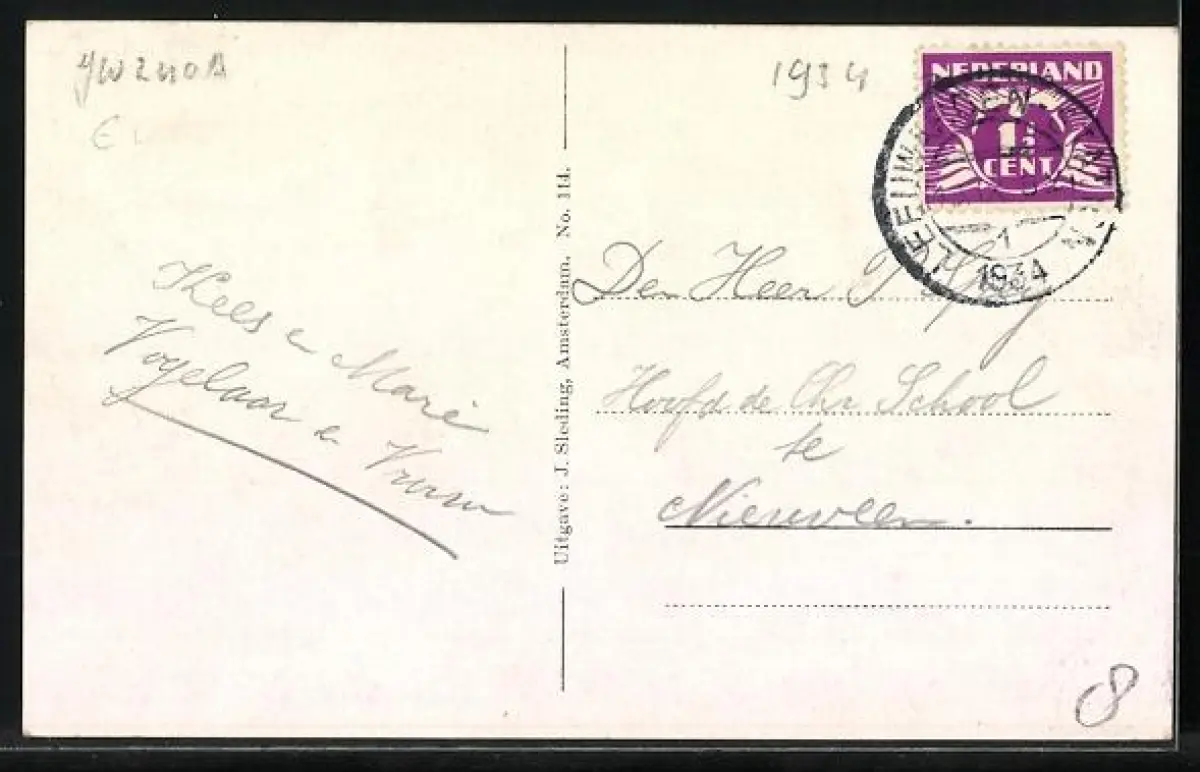 1934
NEDERLAND
1½
CENT
1
1934
Kees en Marie
Vogelaar en
Uitgave: J. Sleding, Amsterdam. No. 11d.
Den Heer
Hoofd de Chr School
te
Nieuwveen.
8